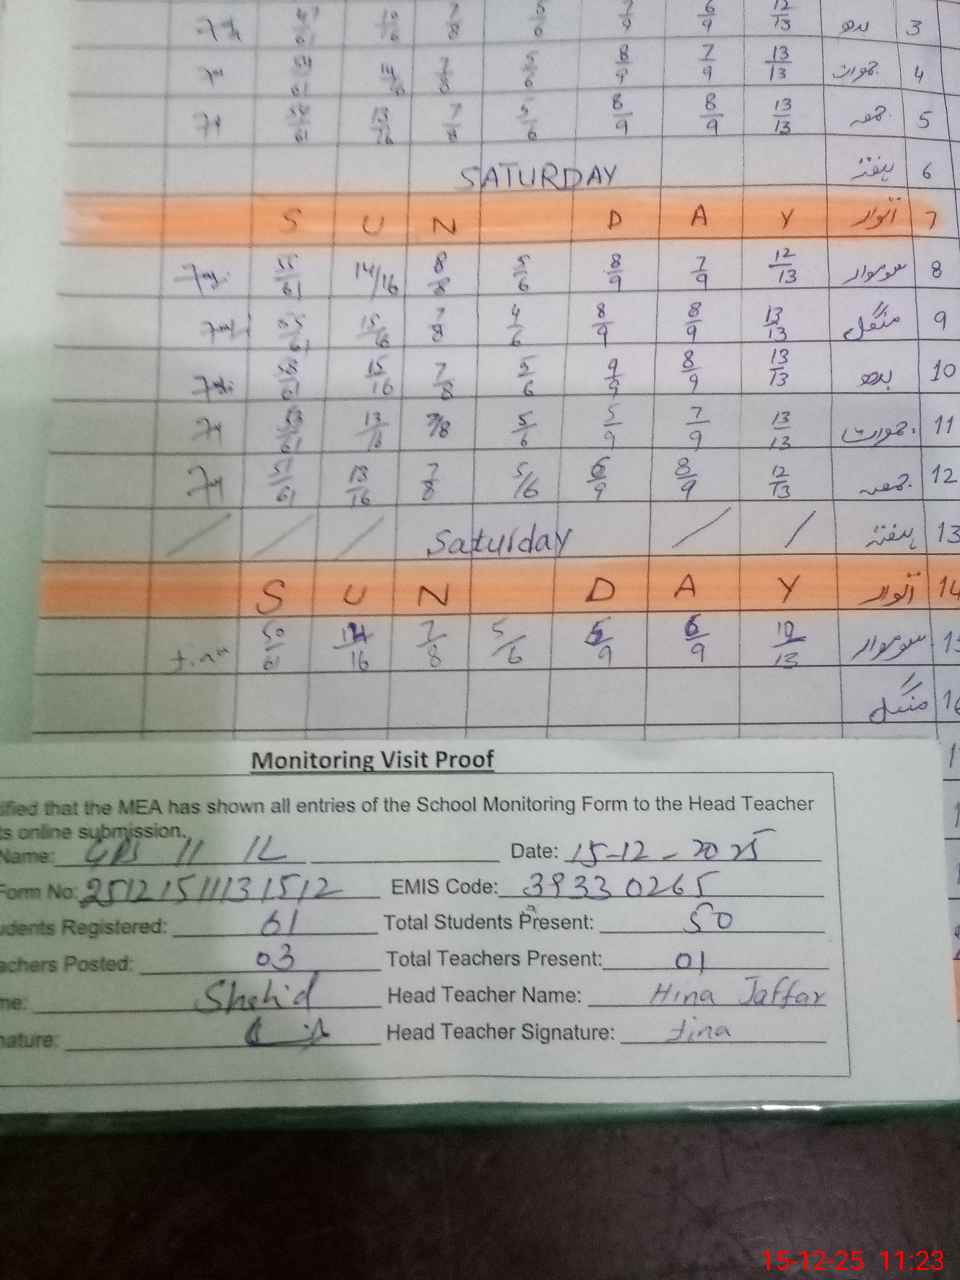 47/61 10/16 7/8 5/6 7/9 6/9 12/13 بدھ 3
54/61 14/16 7/8 5/6 8/9 7/9 13/13 جمعرات 4
54/61 13/16 7/8 5/6 8/9 8/9 13/13 جمعہ 5
SATURDAY ہفتہ 6
S U N D A Y اتوار 7
55/61 14/16 8/8 5/6 8/9 7/9 12/13 سوموار 8
55/61 15/16 7/8 4/6 8/9 8/9 13/13 منگل 9
58/61 15/16 7/8 5/6 9/9 8/9 13/13 بدھ 10
53/61 13/16 7/8 5/6 5/9 7/9 13/13 جمعرات 11
51/61 13/16 7/8 5/6 6/9 8/9 12/13 جمعہ 12
Saturday ہفتہ 13
S U N D A Y اتوار 14
50/61 14/16 7/8 5/6 6/9 12/13 سوموار 15
منگل 16
Monitoring Visit Proof
ified that the MEA has shown all entries of the School Monitoring Form to the Head Teacher
ts online submission.
Name: GPS 11 1L Date: 15-12-2025
Form No: 25121511131512 EMIS Code: 39330265
udents Registered: 61 Total Students Present: 50
achers Posted: 03 Total Teachers Present: 01
me: Shahid Head Teacher Name: Hina Jaffar
nature: Head Teacher Signature: Hina
15-12-25 11:23